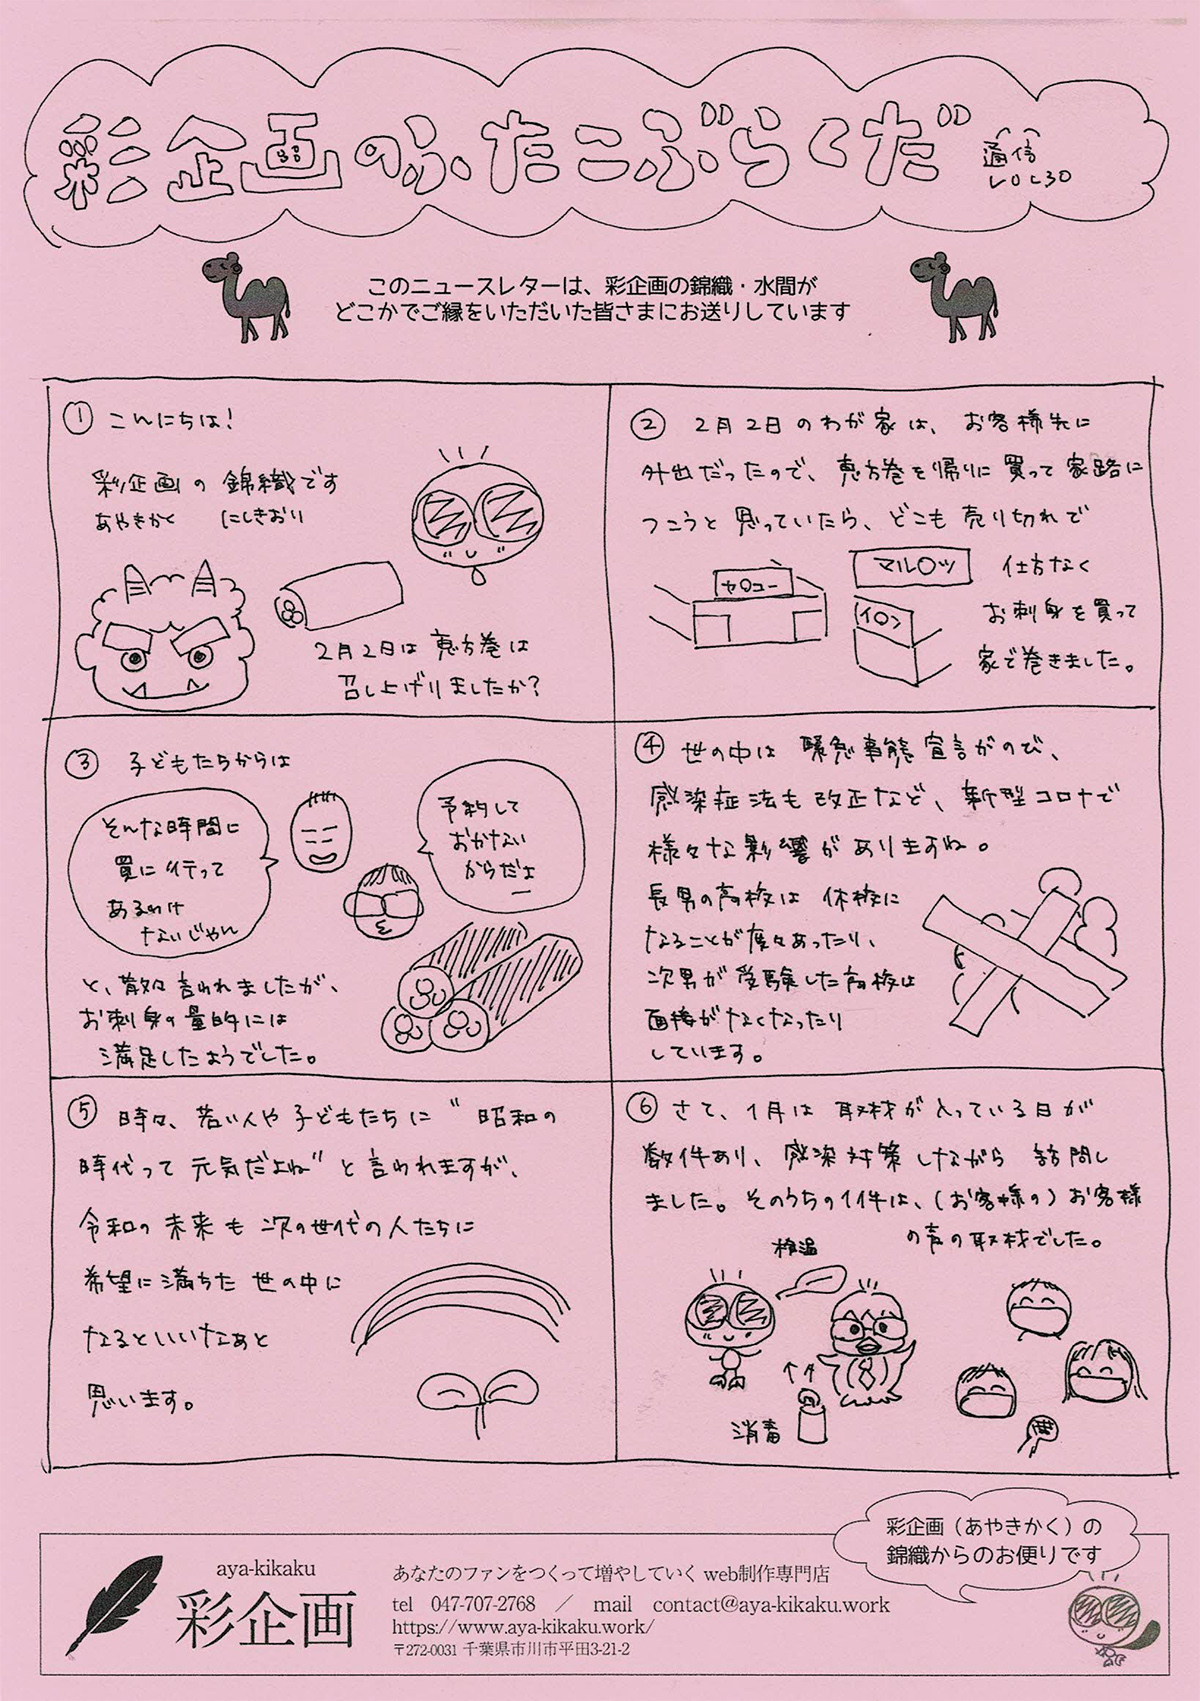 彩企画のふたこぶらくだ 通信 VOL30
このニュースレターは、彩企画の錦織・水間が
どこかでご縁をいただいた皆さまにお送りしています
① こんにちは!
彩企画の錦織です
あやきかく にしきおり
2月2日は恵方巻は
召し上がりましたか?
② 2月2日のわが家は、お客様先に
外出だったので、恵方巻を帰りに買って家路に
つこうと思っていたら、どこも売り切れで
ヤ○コー
マル○ツ
イ○ン
仕方なく
お刺身を買って
家で巻きました。
③ 子どもたちからは
そんな時間に
買に行って
あるわけ
ないじゃん
予約して
おかない
からだよ
と、散々言われましたが、
お刺身の量的には
満足したようでした。
④ 世の中は緊急事態宣言がのび、
感染症法も改正など、新型コロナで
様々な影響がありますね。
長男の高校は休校に
なることが度々あったり、
次男が受験した高校は
面接がなくなったり
しています。
⑤ 時々、若い人や子どもたちに"昭和の
時代って元気だよね"と言われますが、
令和の未来も次の世代の人たちに
希望に満ちた世の中に
なるといいなあと
思います。
⑥ さて、1月は取材が入っている日が
数件あり、感染対策しながら訪問し
ました。そのうちの1件は、(お客様の)お客様
の声の取材でした。
検温
消毒
彩企画(あやきかく)の
錦織からのお便りです
aya-kikaku
彩企画
あなたのファンをつくって増やしていく web制作専門店
tel 047-707-2768 / mail contact@aya-kikaku.work
https://www.aya-kikaku.work/
〒272-0031 千葉県市川市平田3-21-2